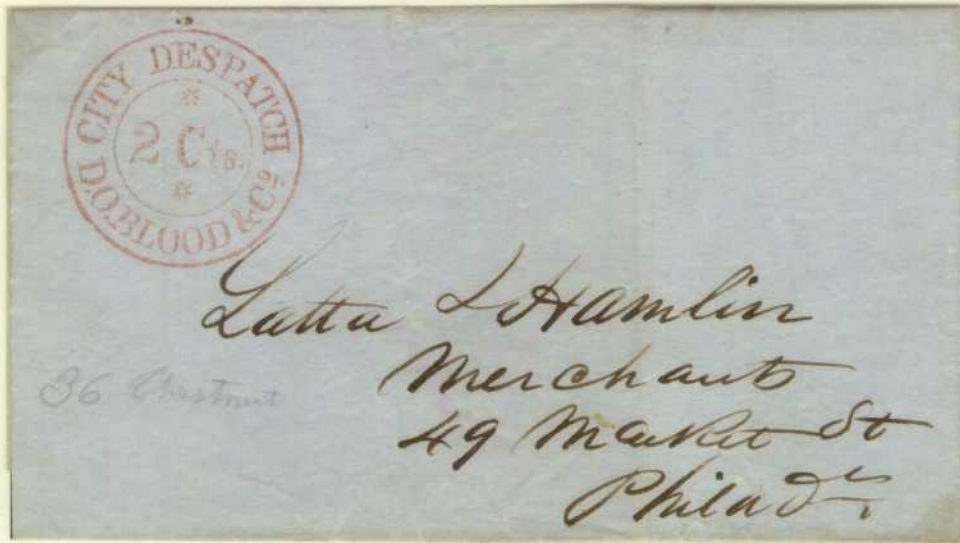 CITY DESPATCH
2 Cts.
D.O.BLOOD & Co.
Latta & Hamlin
Merchants
49 Market St
Philada
36 Chestnut